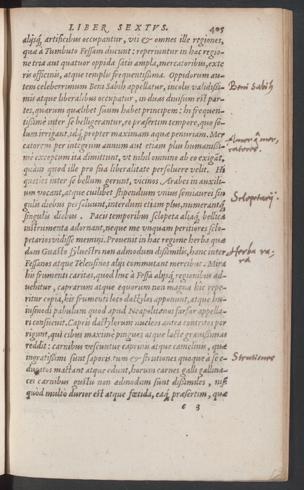 LIBER SEXTVS. 405
alijsq́; artificibus occupantur, vti & omnes ille regiones,
quæ à Tumbuto Fessam ducunt: reperiuntur in hac regio-
ne tria aut quatuor oppida satis ampla, mercatoribus, exte
ris officinis, atque templis frequentissima. Oppidorum au-
tem celeberrimum Beni Sabih appellatur, incolæ validissi-
mi atque liberalibus occupatur, in duas diuisum est par-
tes, quarum quælibet suum habet principem: hi frequen-
tissimè inter se belligerantur, eo præsertim tempore, quo so-
lum irrigant, idq́; propter maximam aquæ penuriam. Mer
catorem per integrum annum aut etiam plus humanissi-
mè exceptum ita dimittunt, vt nihil omnino ab eo exigāt,
quàm quod ille pro sua liberalitate persoluere velit. Hi
quoties inter se bellum gerunt, vicinos Arabes in auxili-
um vocant, atque cuilibet stipendium vnius
gulis diebus persoluunt, interdum etiam plus, numerantq́;
singulis diebus. Pacis temporibus sclopeta aliaq́; bellica
instrumenta adornant, neque me vnquam peritiores sclo-
petarios vidisse memini. Prouenit in hac regione herba quæ
dam Guasto siluestri non admodum dissimilis, hanc inter
Fessanos atque Telensinos alijs commutant mercibus. Mira
hîc frumenti caritas, quod huc à Fessa alijsq́ regionibus ad-
uehitur, caprarum atque equorum non magna hîc repe-
ritur copia, his frumenti loco dactylos apponunt, atque hu-
iusmodi pabulum quod apud Neapolitanos farfar appella-
ri consueuit. Capris dactylorum nucleos antea contritos por
rigunt, qui cibus maximè pingues atque lacte grauissimas
reddit: carnibus vescuntur caprinis atque camelinis, quæ
ingratissimi sunt saporis tum & strutiones quoque à se e-
ducatos mactant atque edunt, horum carnes galli gallina-
ceі carnibus gustu non admodum sunt dissimiles, nisi
quod multò durior est atque fœtida, eaq́; præsertim, quæ
e 3
Beni Sabih
Sclopetarij.
Herba ra-
ra
Strutiones